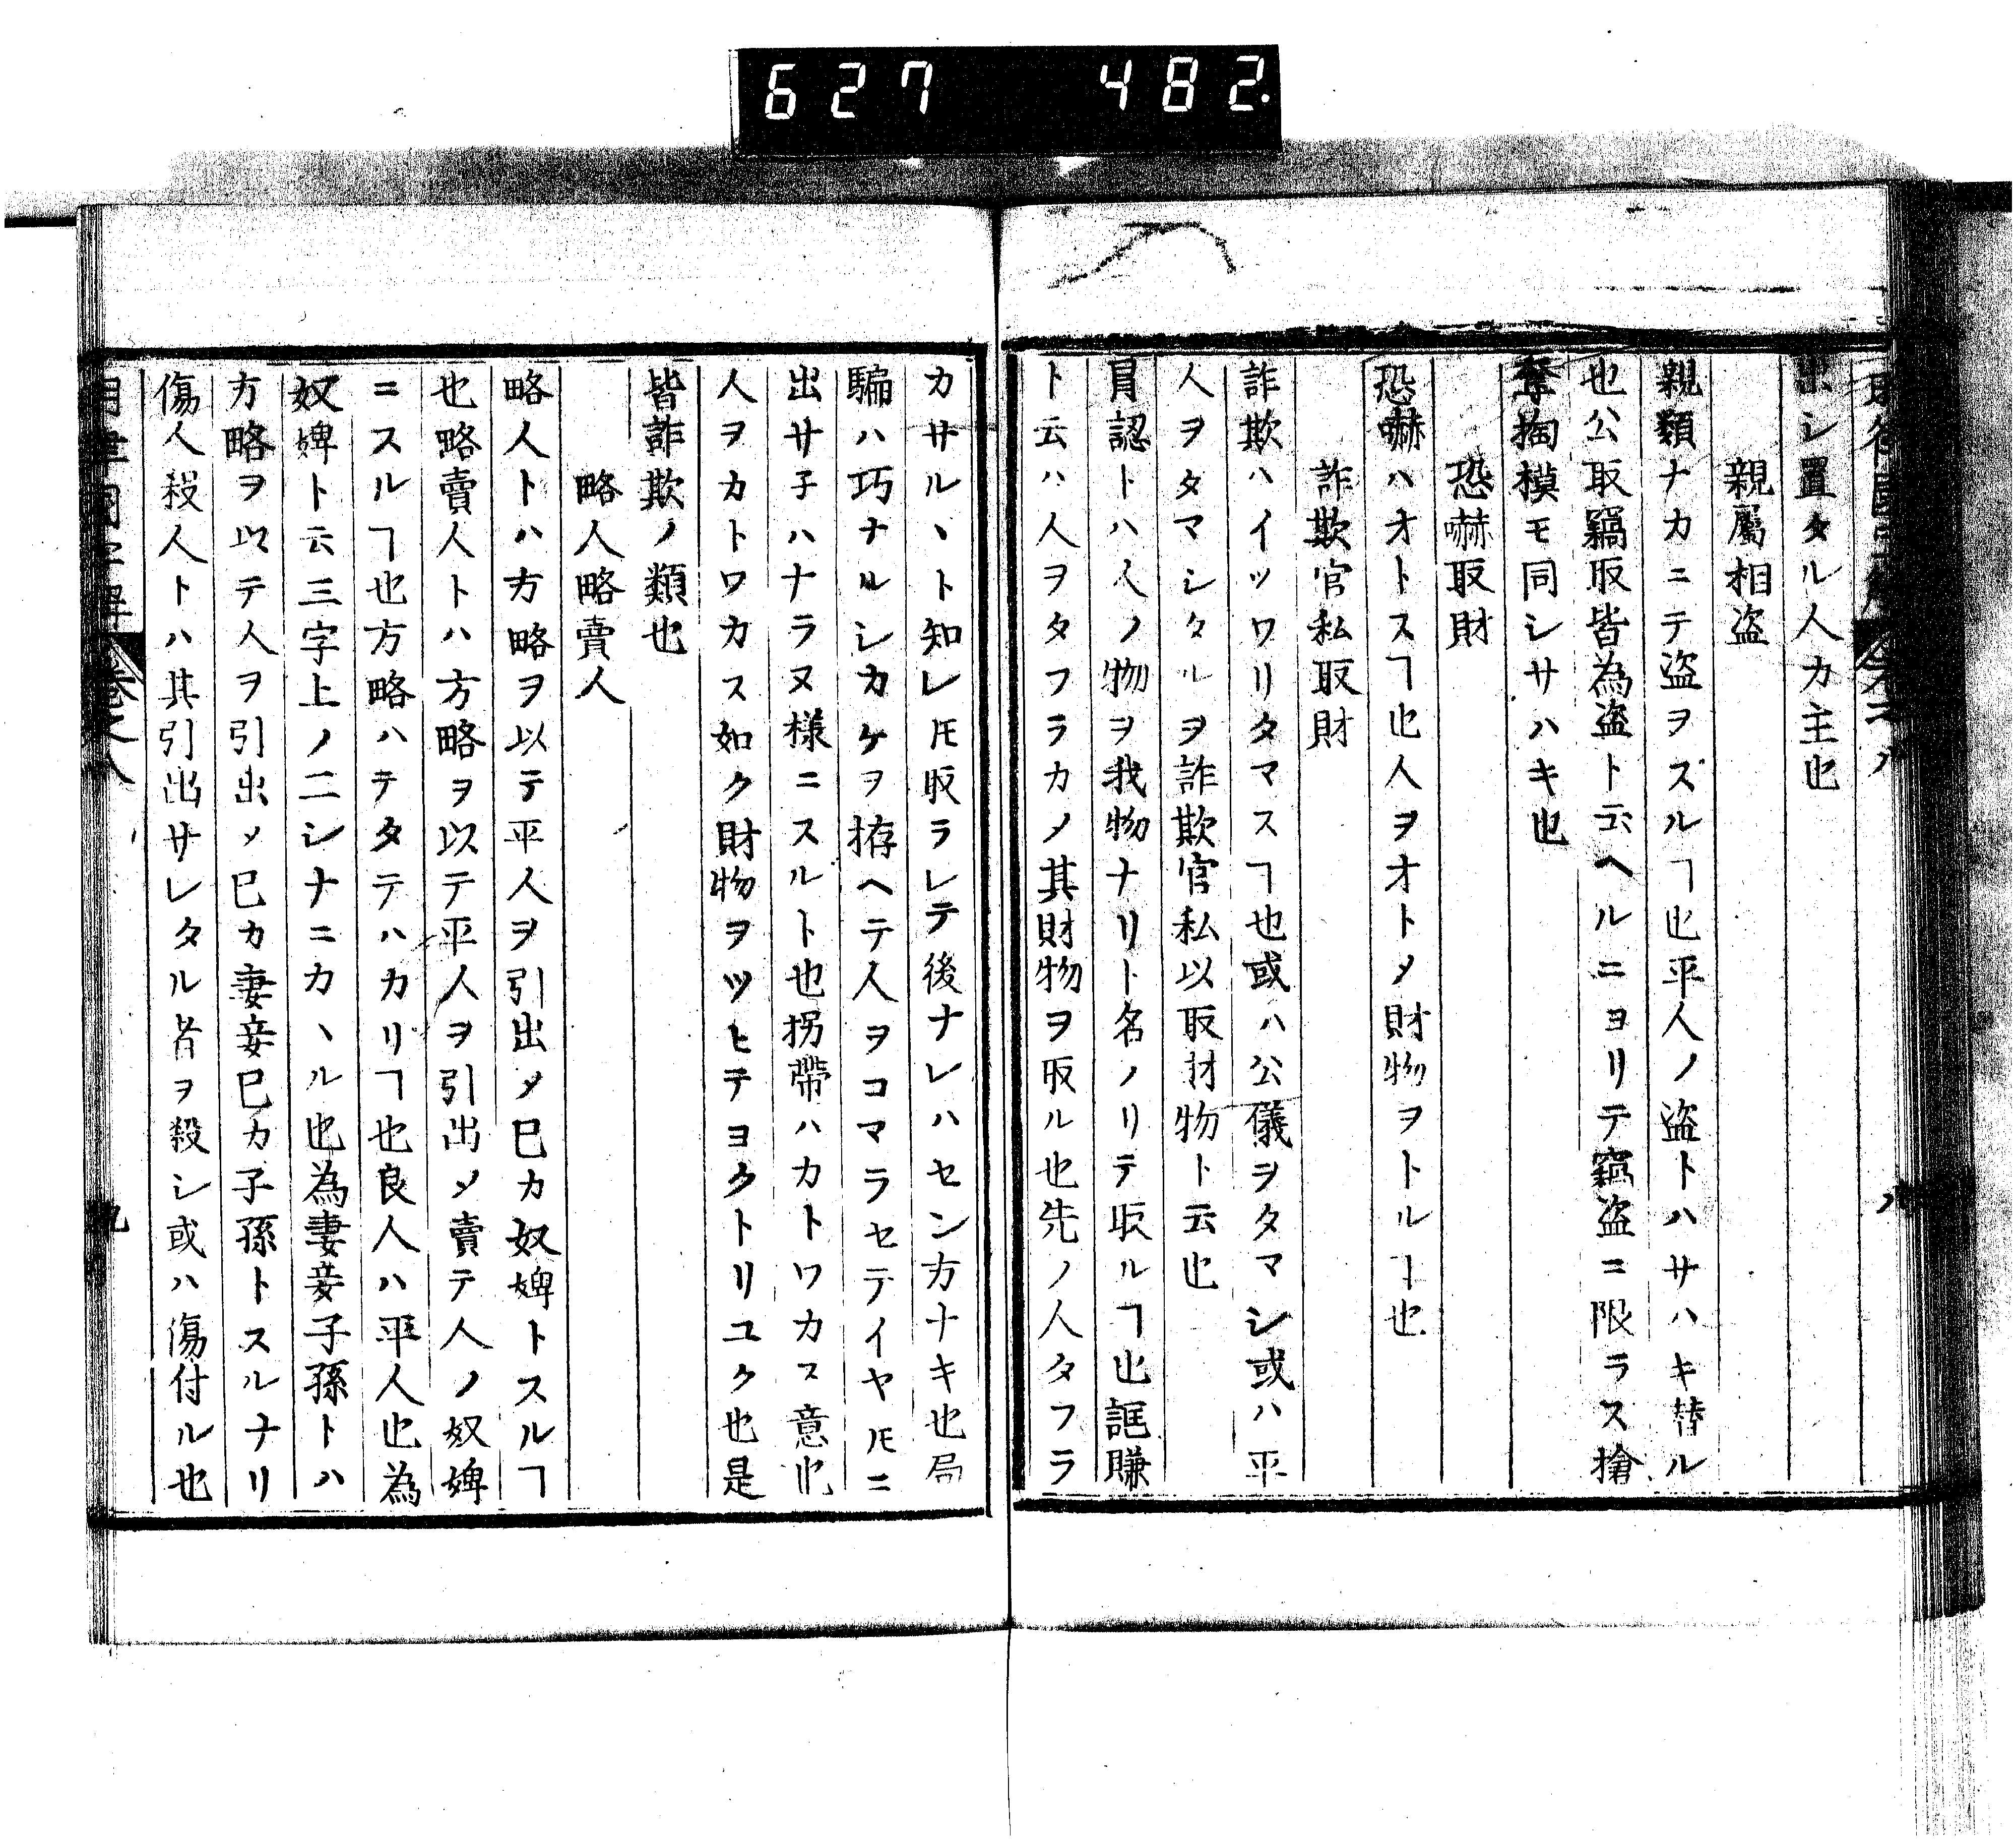 627 482.
出シ置タル人カ主也
親屬相盗
親類ナカニテ盗ヲズルヿ也平人ノ盗トハサハキ替ル
也公取竊取皆為盗ト云ヘルニヨリテ竊盗ニ限ラス搶
奪掏摸モ同シサハキ也
恐嚇取財
恐嚇ハオトスヿ也人ヲオトメ財物ヲトルヿ也
詐欺官私取財
詐欺ハイツワリタマスヿ也或ハ公儀ヲタマシ或ハ平
人ヲタマシタルヲ詐欺官私以取財物ト云也
冐認トハ人ノ物ヲ我物ナリト名ノリテ取ルヿ也誆賺
ト云ハ人ヲタフラカメ其財物ヲ取ル也先ノ人タフラ
カサルヽト知レ𪜈取ラレテ後ナレハセン方ナキ也局
騙ハ巧ナルシカケヲ拵ヘテ人ヲコマラセテイヤ𪜈ニ
出サ子ハナラヌ様ニスルト也拐帶ハカトワカス意也
人ヲカトワカス如ク財物ヲツヒテヨクトリユク也是
皆詐欺ノ類也
略人略賣人
略人トハ方略ヲ以テ平人ヲ引出メ巳カ奴婢トスルヿ
也略賣人トハ方略ヲ以テ平人ヲ引出メ賣テ人ノ奴婢
ニスルヿ也方略ハテタテハカリヿ也良人ハ平人也為
奴婢ト云三字上ノ二シナニカヽル也為妻妾子孫トハ
方略ヲ以テ人ヲ引出メ巳カ妻妾巳カ子孫トスルナリ
傷人殺人トハ其引出サレタル者ヲ殺シ或ハ傷付ル也
明律國字解 卷之八 九